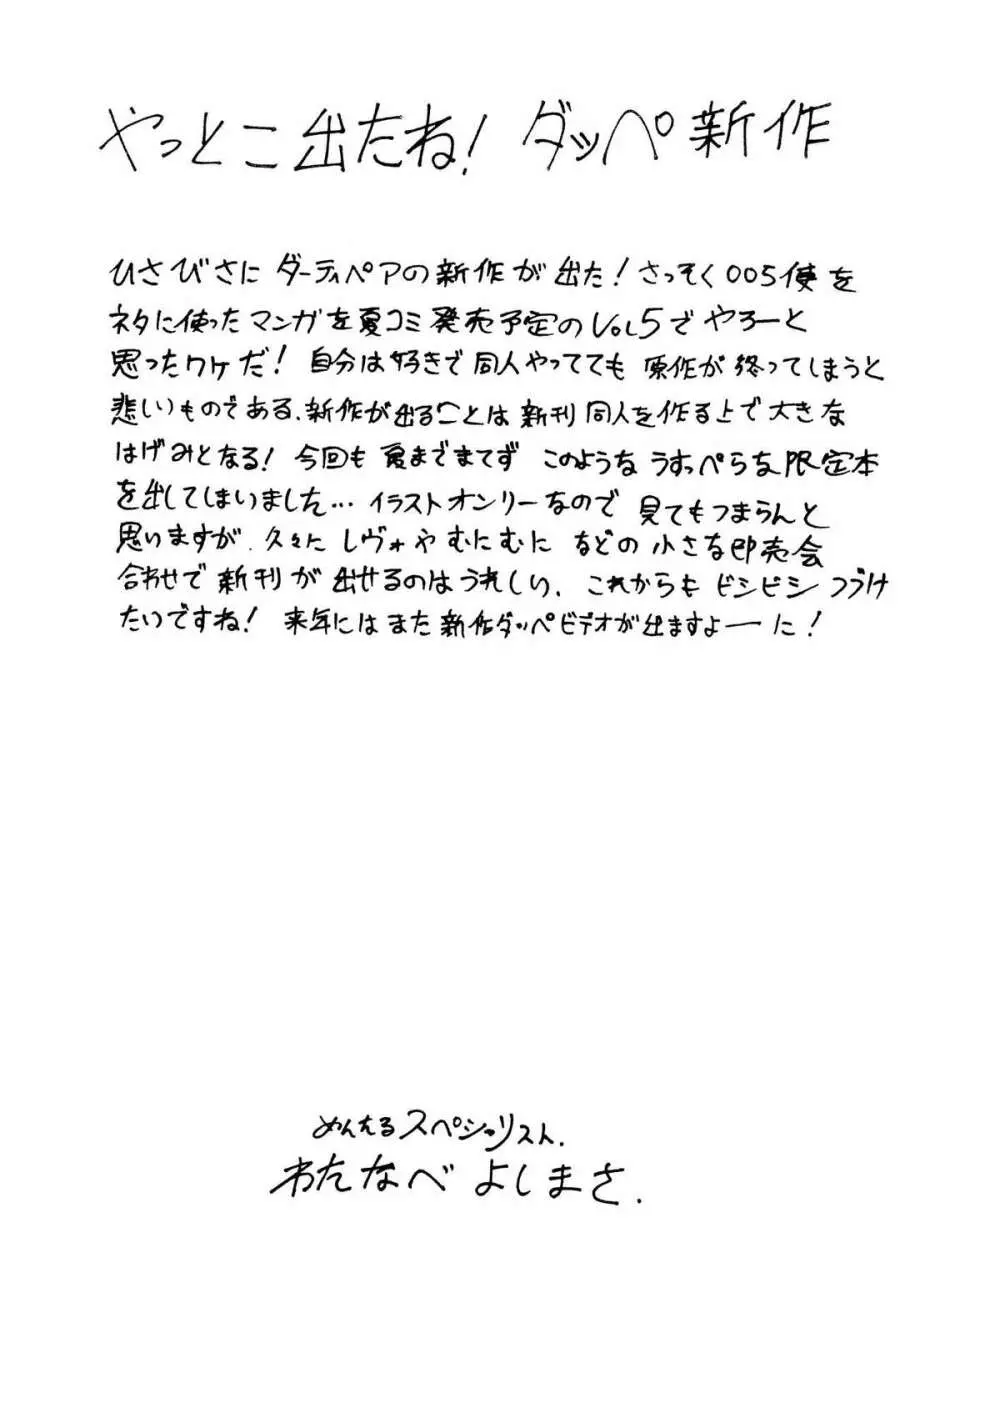 やっとこ出たね! ダッペ新作
ひさびさに ダーティペアの新作が出た!さっそく005便を
ネタに使ったマンガを夏コミ発売予定のVol5でやろーと
思ったワケだ! 自分は好きで同人やってても 原作が終ってしまうと
悲しいものである、新作が出ることは新刊同人を作る上で大きな
はげみとなる! 今回も夏までまてず このようなうすっぺらな限定本
を出してしまいました… イラストオンリーなので見てもつまらんと
思いますが、久々に レヴォやむにむに などの小さな即売会
合わせで新刊が出せるのはうれしい、これからもビシビシつづけ
たいですね! 来年にはまた新作ダッペビデオが出ますよーに!
めんたるスペシャリスト.
わたなべ よしまさ.